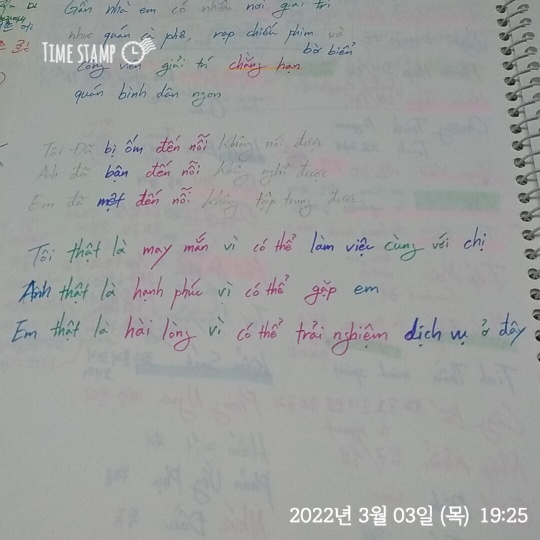 Gần nhà em có nhiều nơi giải trí
như quán cà phê, rạp chiếu phim và
bờ biển
TIME STAMP
công viên giải trí chẳng hạn
quán bình dân ngon
Tôi Đã bị ốm đến nỗi không nói được
Anh đã bận đến nỗi không nghỉ được
Em đã mệt đến nỗi không tập trung được
Tôi thật là may mắn vì có thể làm việc cùng với chị
Anh thật là hạnh phúc vì có thể gặp em
Em thật là hài lòng vì có thể trải nghiệm dịch vụ ở đây
2022년 3월 03일 (목) 19:25